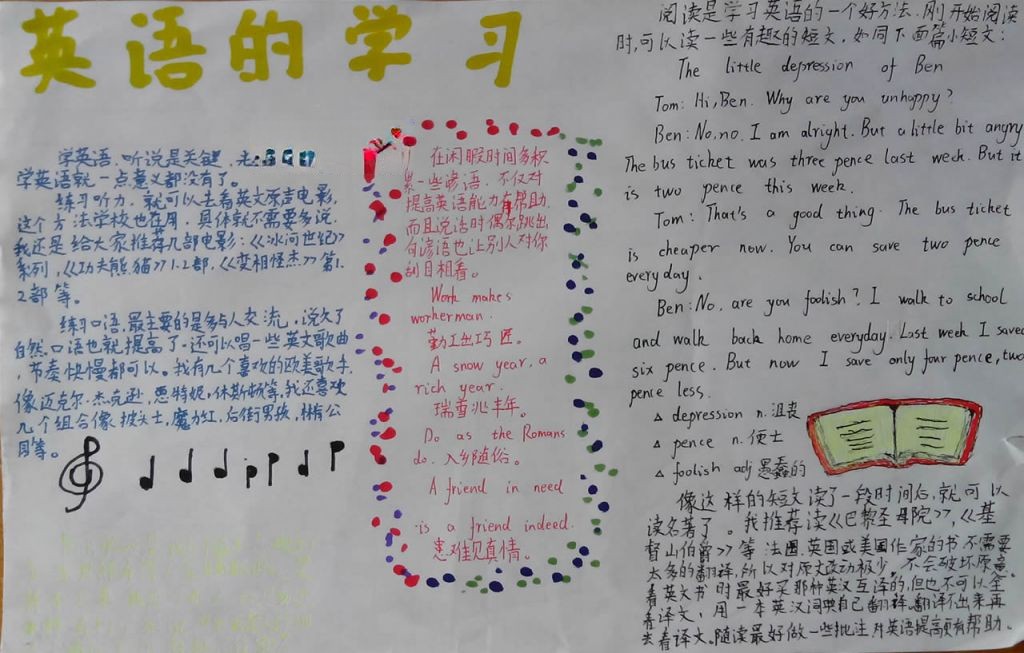 英语的学习
学英语,听说是关键,
学英语就一点意义都没有了。
练习听力,就可以去看英文原声电影,
这个方法学校也在用,具体就不需要多说,
我还是给大家推荐几部电影:《冰河世纪》
系列,《功夫熊猫》1.2部,《变相怪杰》第1.
2部等。
练习口语,最主要的是多与人交流,说久了
自然口语也就提高了。还可以唱一些英文歌曲
,节奏快慢都可以。我有几个喜欢的欧美歌手,
像迈克尔·杰克逊,恩特妮,休斯顿等,我还喜欢
几个组合像披头士,魔力红,后街男孩,林肯公
园等。
在闲暇时间多积
累一些谚语,不仅对
提高英语能力有帮助,
而且说话时偶尔跳出一
句谚语也让别人对你
刮目相看。
Work makes
workerman.
勤工出巧匠。
A snow year, a
rich year.
瑞雪兆丰年。
Do as the Romans
do. 入乡随俗。
A friend in need
is a friend indeed.
患难见真情。
阅读是学习英语的一个好方法,刚开始阅读
时,可以读一些有趣的短文,如同下面篇小短文:
The little depression of Ben
Tom: Hi, Ben. Why are you unhappy?
Ben: No, no. I am alright. But a little bit angry
The bus ticket was three pence last week. But it
is two pence this week.
Tom: That's a good thing. The bus ticket
is cheaper now. You can save two pence
everyday.
Ben: No, are you foolish? I walk to school
and walk back home everyday. Last week I saved
six pence. But now I save only four pence, two
pence less.
△ depression n. 沮丧
△ pence n. 便士
△ foolish adj 愚蠢的
像这样的短文读了一段时间后,就可以
读名著了。我推荐读《巴黎圣母院》,《基
督山伯爵》等法国,英国或美国作家的书,不需要
太多的翻译,所以对原文改动极少,不会破坏原意。
看英文书时最好买那种英汉互译的,但也不可以全
看译文,用一本英汉词典自己翻译,翻译不出来再
去看译文。随读最好做一些批注,对英语提高更有帮助。